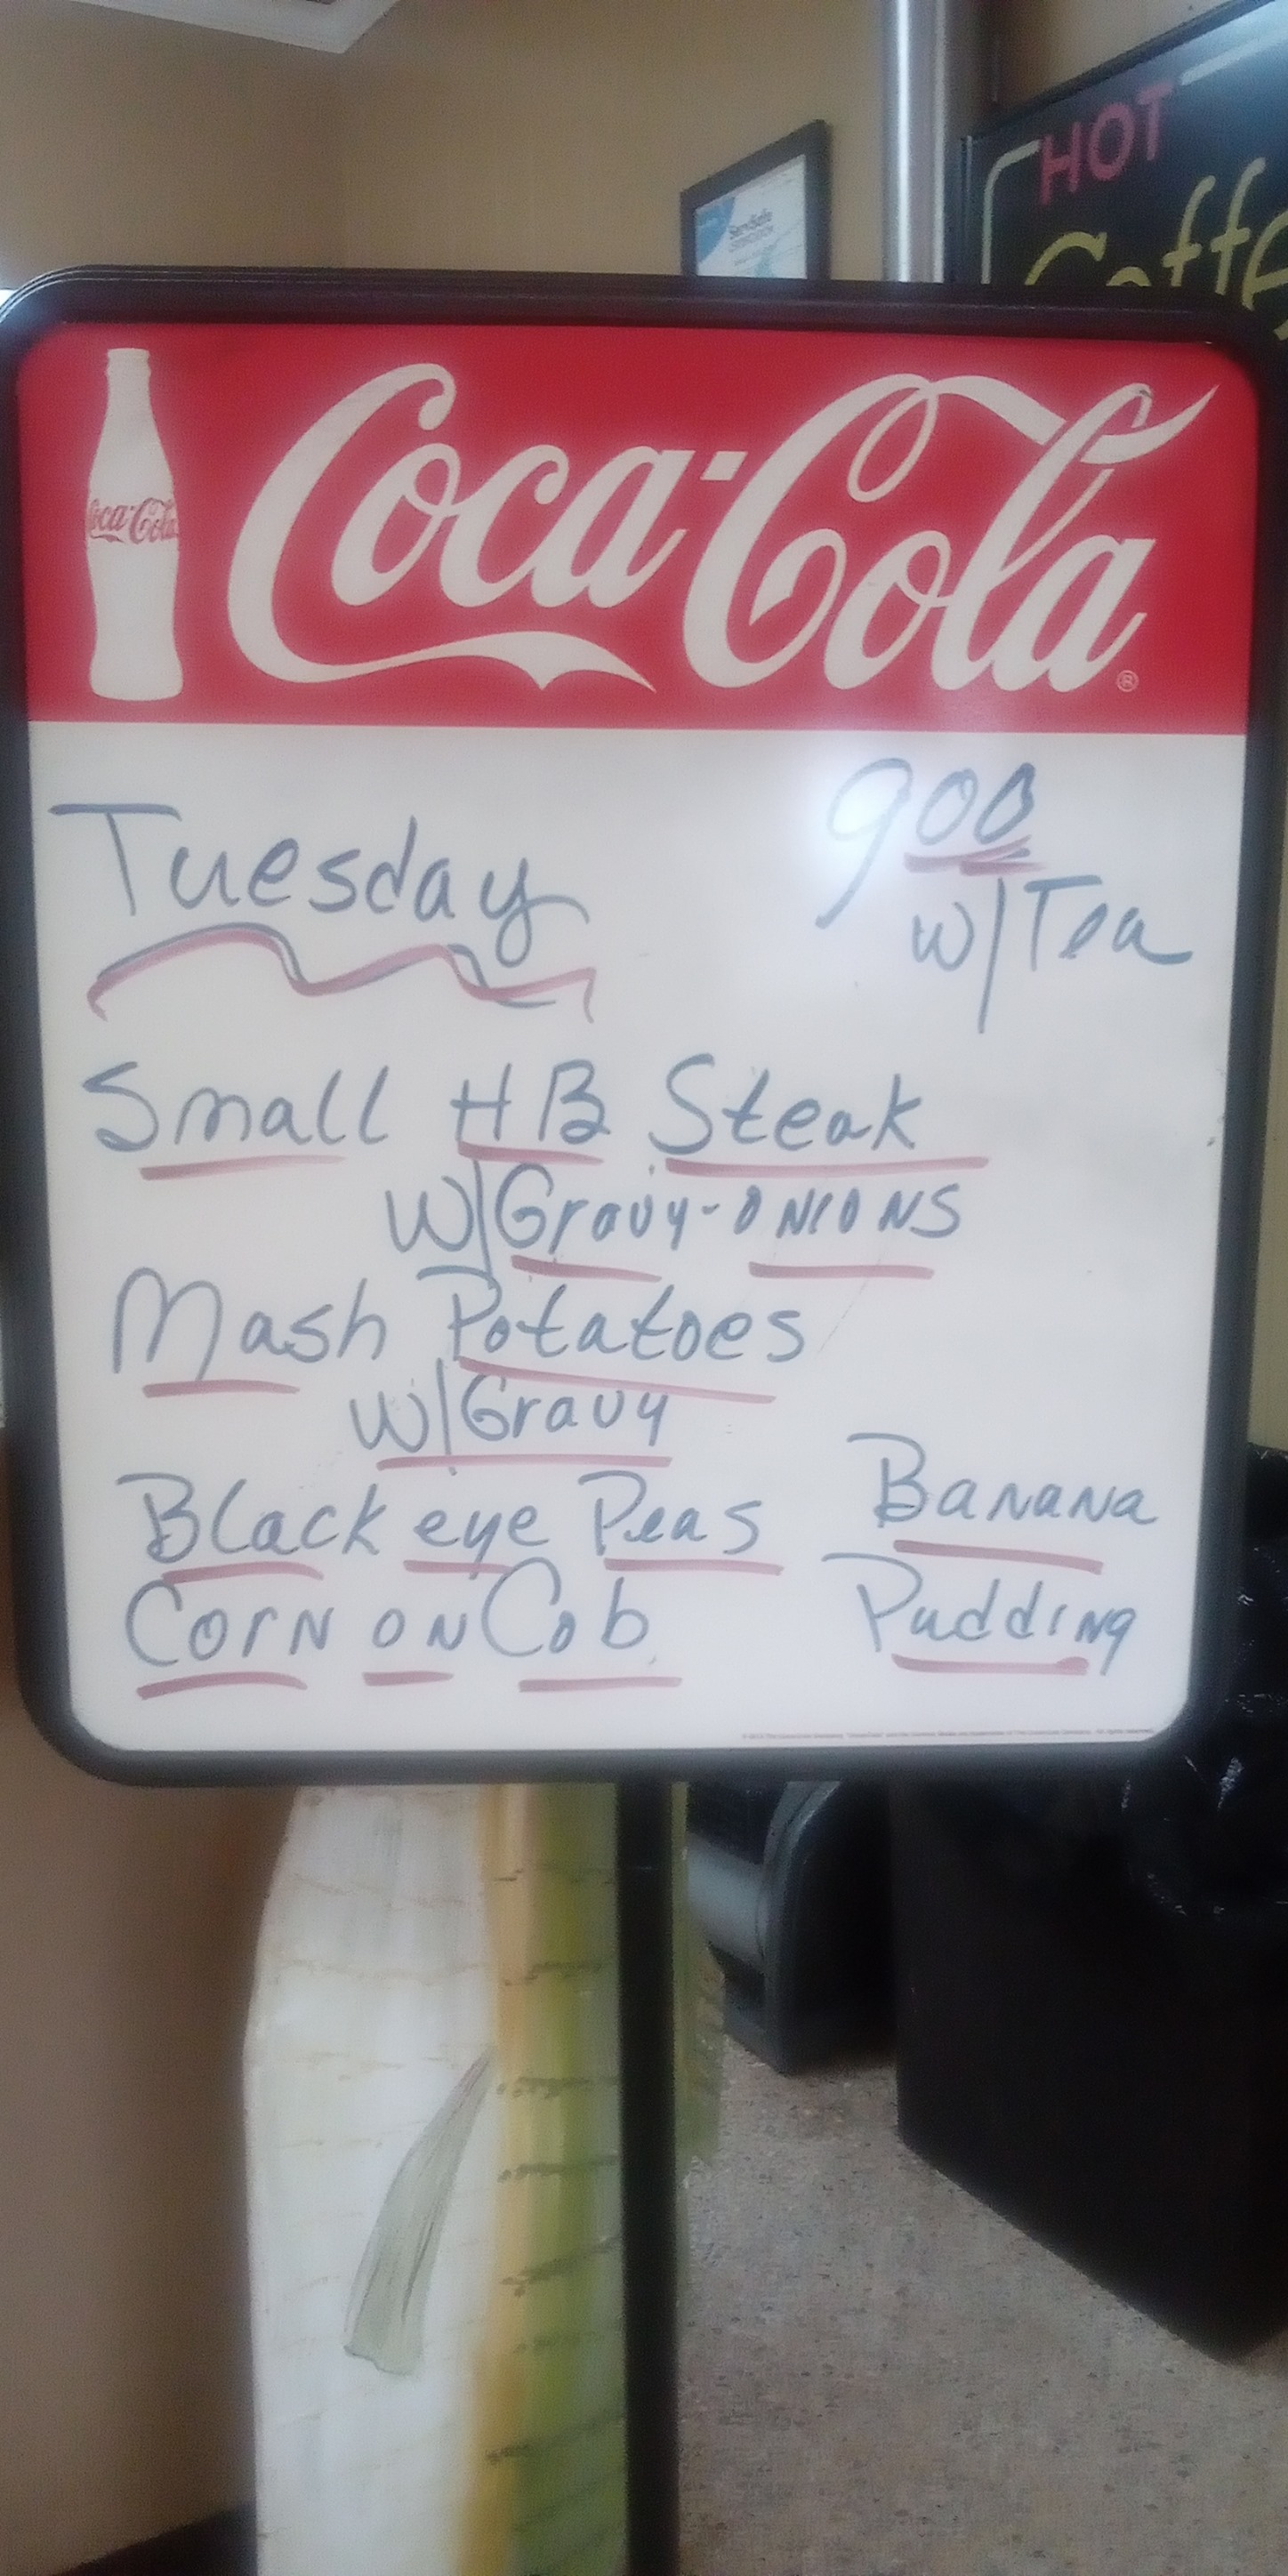 HOT
Coffe
ServSafe
Coca-Cola
Coca-Cola
®
Tuesday
900
w/Tea
Small HB Steak
w/Gravy-ONIONS
Mash Potatoes
w/Gravy
Black eye Peas
Corn on Cob
Banana
Pudding